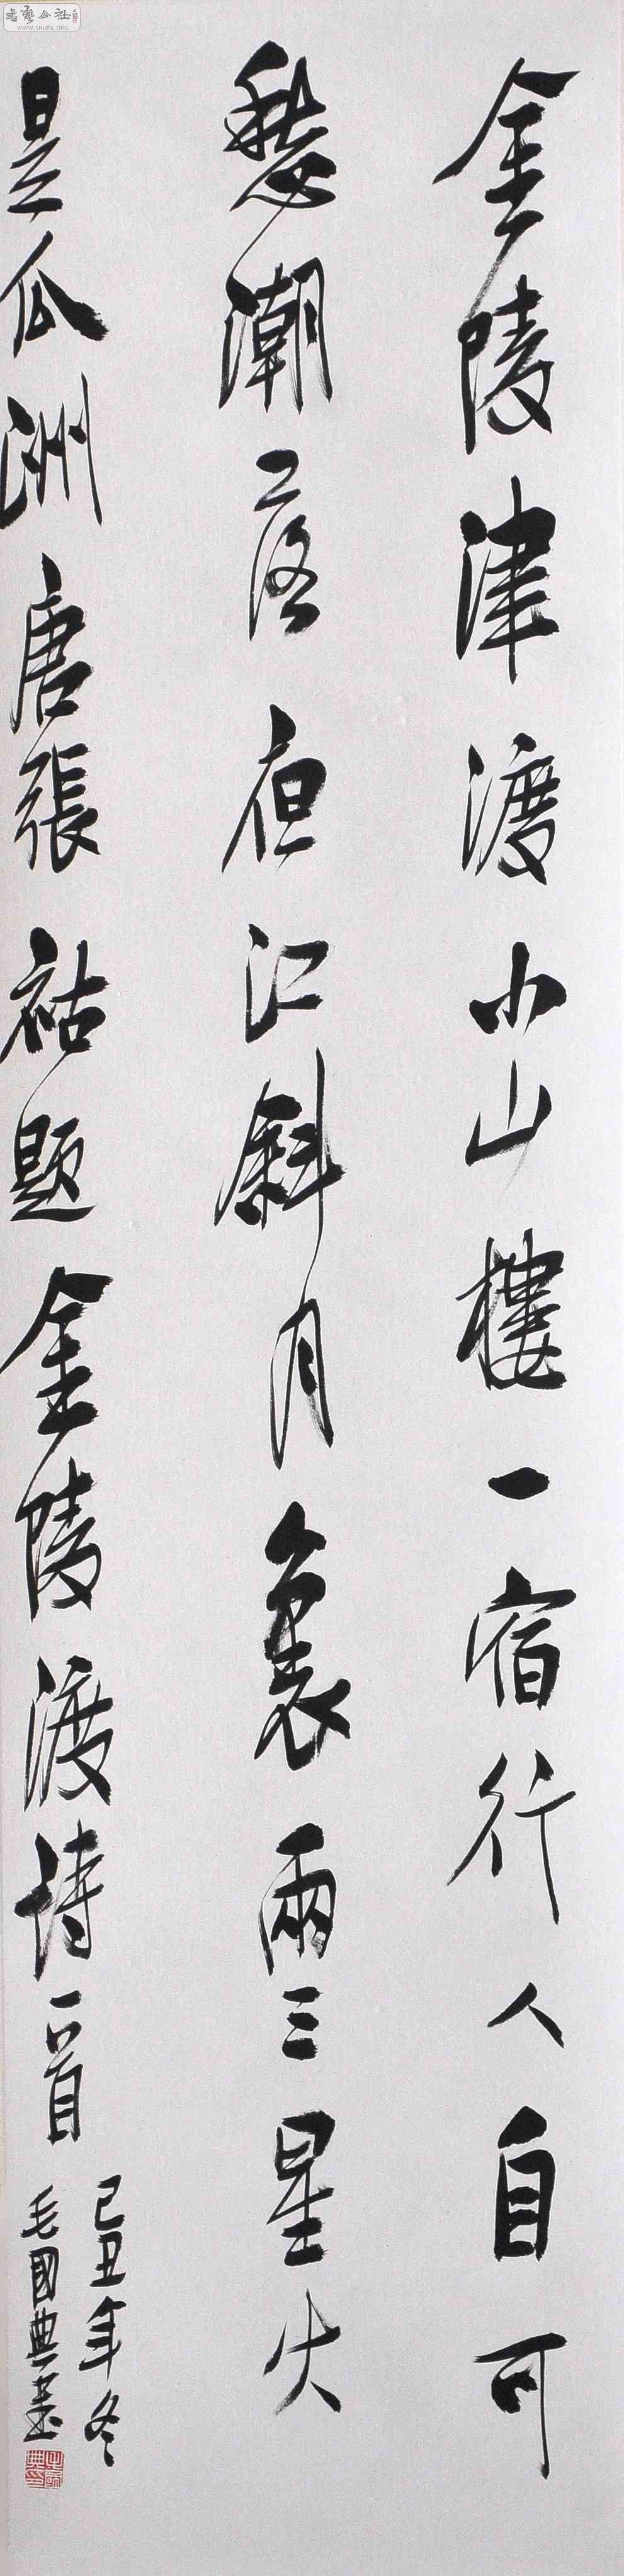 金陵津渡小山樓一宿行人自可
愁潮落夜江斜月裏兩三星火
是瓜洲唐張祜題金陵渡詩一首
己丑年冬
毛國典書
書藝公社
WWW.SHUFA.ORG